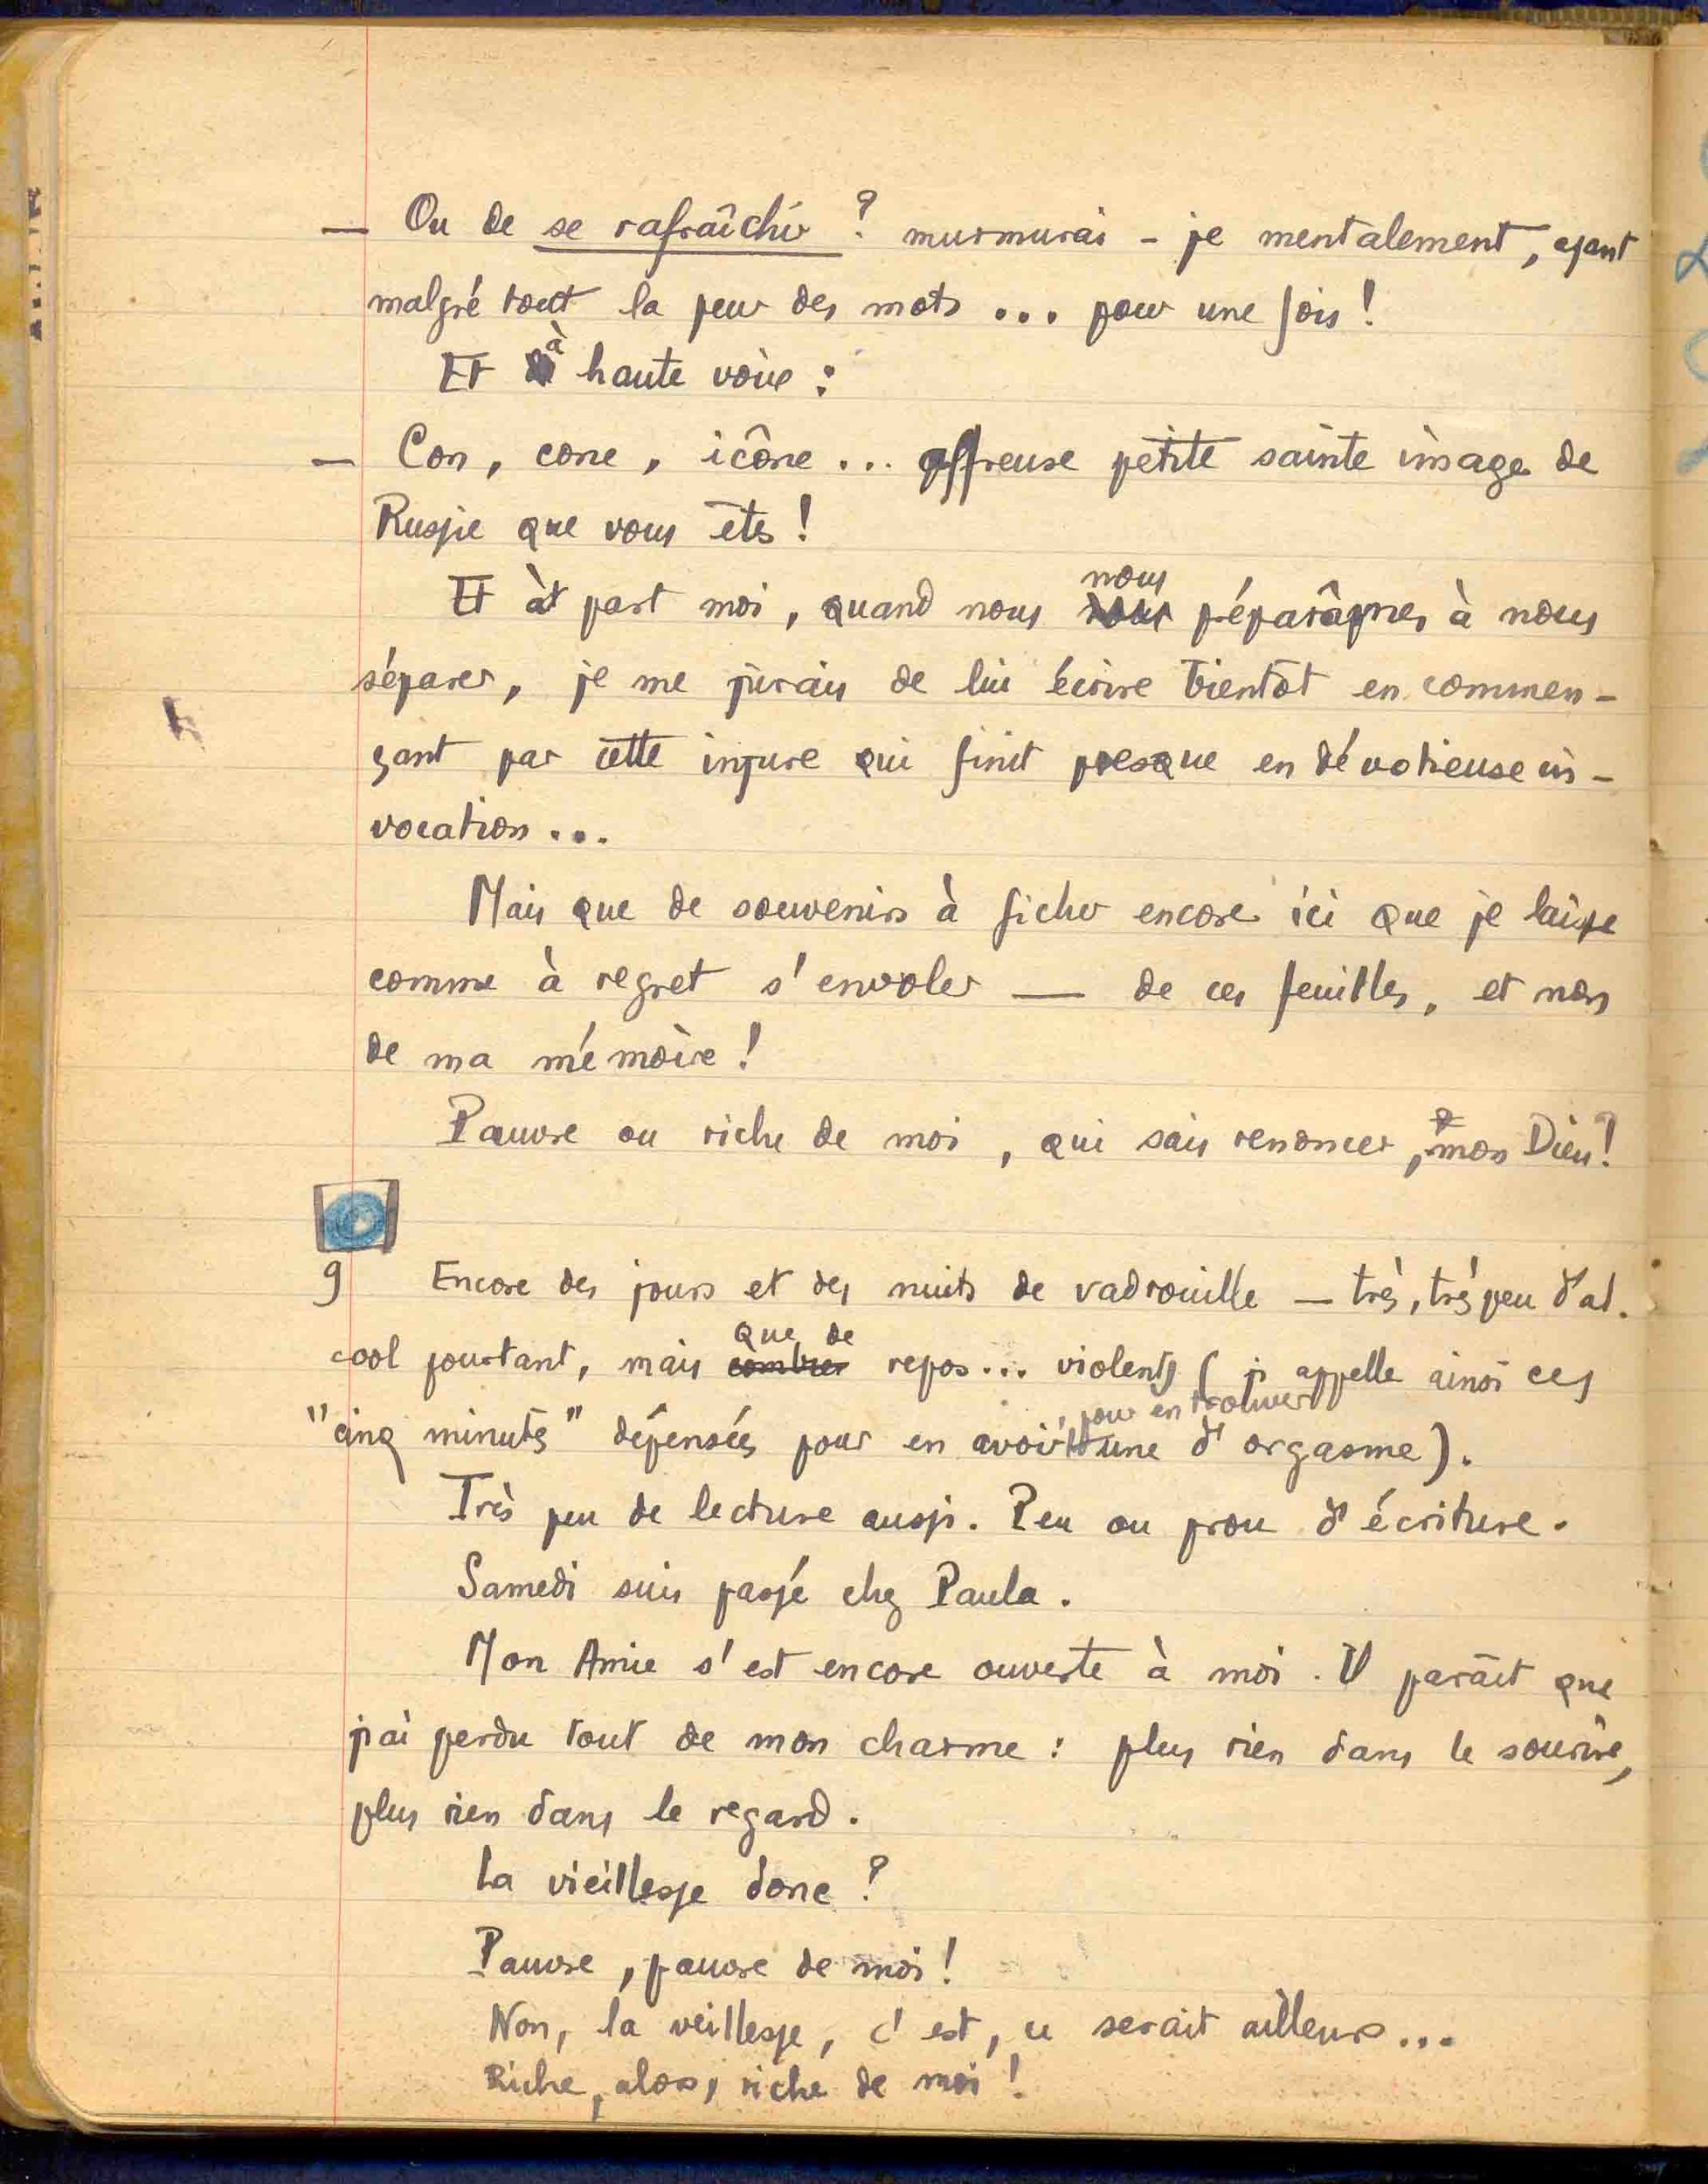 — Ou de se rafraîchir ? murmurai-je mentalement, ayant
malgré tout la peur des mots ... pour une fois !
Et à haute voix :
— Con, cone, icône ... affreuse petite sainte image de
Russie que vous êtes !
Et à part moi, quand nous nous préparâmes à nous
séparer, je me jurais de lui écrire bientôt en commen-
çant par cette injure qui finit presque en dévotieuse in-
vocation ...
Mais que de souvenirs à ficher encore ici que je laisse
comme à regret s'envoler — de ces feuilles, et non
de ma mémoire !
Pauvre ou riche de moi, qui sais renoncer, mon Dieu !
9 Encore des jours et des nuits de vadrouille — très, très peu d'al-
cool pourtant, mais combien que de repos... violents (j'appelle ainsi ces
"cinq minutes" dépensées pour en avoir pour en trouver une d'orgasme).
Très peu de lecture aussi. Peu ou prou d'écriture.
Samedi suis passé chez Paula.
Mon Amie s'est encore ouverte à moi. Il paraît que
j'ai perdu tout de mon charme : plus rien dans le sourire,
plus rien dans le regard.
La vieillesse donc ?
Pauvre, pauvre de moi !
Non, la veillesse, c'est, ce serait ailleurs ...
Riche, alors, riche de moi !